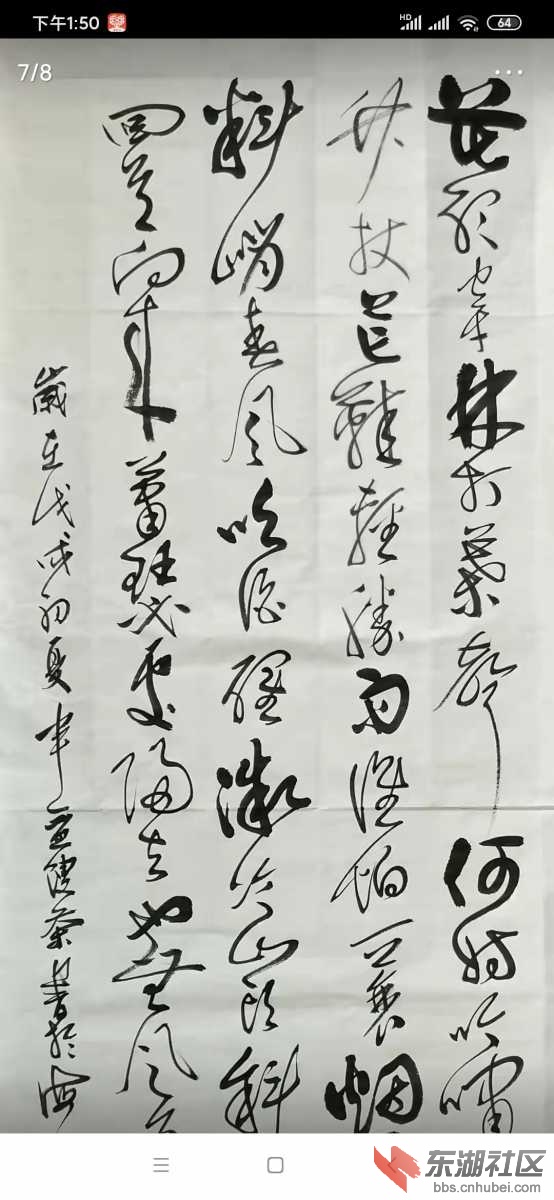 下午1:50
HD
64
7/8
莫聽穿林打葉聲何妨吟嘯
竹杖芒鞋輕勝馬誰怕一蓑烟
料峭春風吹酒醒微冷山頭斜
回首向來蕭瑟處歸去也無風
歲在戊戌初夏書於
东湖社区
bbs.cnhubei.com